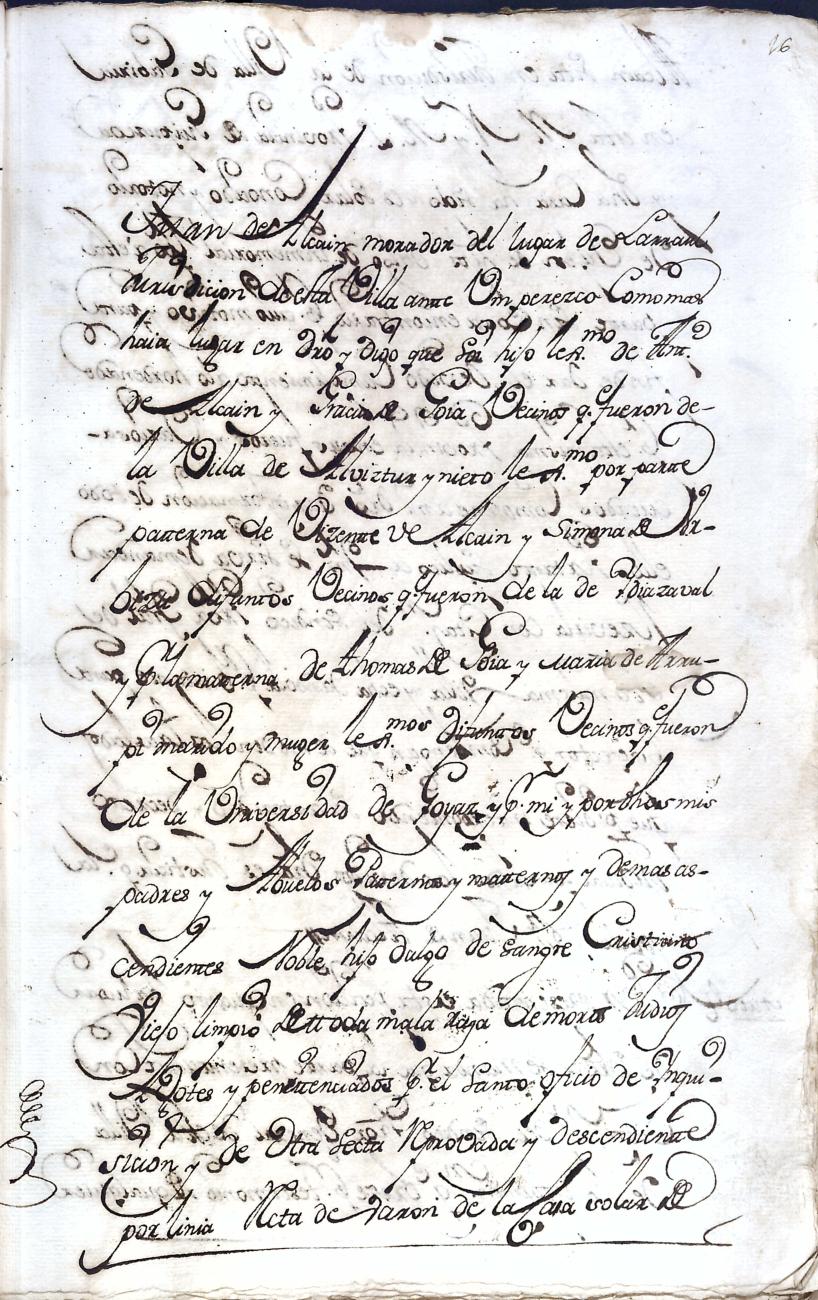 16
Juan de Alcain morador del lugar de Larraul
Jurisdicion de esta Villa ante Vm perezco Como mas
haia lugar en dro y digo que soi hijo lex.mo de Ant.o
de Alcain y Gracia de Goia Vecinos q.e fueron de-
la Villa de Alviztur y nieto lex.mo por parte
patterna de Vizente de Alcain y Simona de Ur-
difuntos Vecinos q.e fueron de la de Ydiazaval
y p.r la matterna de Thomas de Goia y Maria de Arru-
pi marido y muger lex.mos difuntos Vecinos q.e fueron
de la Universidad de Goyaz y p.r mi y por dhos mis
padres y Abuelos Patternos y matternos y demas as-
cendientes Noble hijo dalgo de sangre Cristiano
Viejo limpio de ttoda mala raza de moros Judios
Agotes y penittenciados p.r el Santo oficio de Ynqui-
sicion y de otra secta Reprovada y descendiente
por linia Recta de varon de la Casa solar de